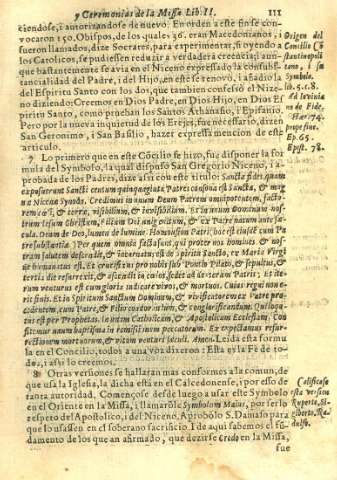 y Ceremonias de la Missa Lib. II. 111
ciendose, i autorizandose de nuevo. En orden a este fin se con-
vocaron 150. Obispos, de los quales 36. eran Macedonianos, i
fueron llamados, dize Socrates, para experimentar, si oyendo a
los Catolicos, se pudiessen reduzir a verdadera creencia; aun-
que bastantemente se avia en el Niceno expressado la consubs-
tancialidad del Padre, i del Hijo, en este se renovò, i añadio la
del Espiritu Santo con los dos, que tambien confessò el Nize-
no diziendo; Creemos en Dios Padre, en Dios Hijo, en Dios Es-
piritu Santo, como prueban los Santos Athanasio, i Epifanio.
Pero por la nueva iniquidad de los Ereges, fue necessario, dizen
San Geronimo, i San Basilio, hazer expressa mencion de este
articulo.
7 Lo primero que en este Cōcilio se hizo, fue disponer la for
mula del Symbolo, la qual dispuso San Gregorio Niceno, i a-
probada de los Padres, dize assi con este titulo: Sancta fides, quam
exposuerunt Sancti centum quinquaginta Patres consona est Sanctæ, & mag
na Nicena Synodo. Credimus in unum Deum Patrem omnipotentem, facto-
rem cæli, & terra, visibilium, & invisibilium. Et in unum Dominum nos-
trum Iesum Christum, Filium Dei unigenitum, & ex Patre natum ante sæ-
cula. Deum de Deo, lumen de lumine. Homousion Patri; hoc est eiusdē cum Pa
tre substantia. Per quem omnia facta sunt, qui propter nos homines & nos-
tram salutem descendit, & incarnatus est de Spiritu Sancto, ex Maria Virgi
ne humanatus est. Et crucifixus pro nobis sub Pontio Pilato, & sepultus, &
tertia die resurrexit, & ascendit in cælos, sedet ad dexteram Patris; Et ite-
rum venturus est cum gloria iudicare vivos, & mortuos. Cuius regni non e-
rit finis. Et in Spiritum Sanctum Dominum, & vivificatorem ex Patre pro-
cedentem, cum Patre, & Filio coadorandum, & conglorificandum: Qui loqu-
tus est per Prophetas. In unam Catholicam, & Apostolicam Ecclesiam. Con-
fitemur unum baptisma in remissionem peccatorum. Ex expectamus resur-
rectionem mortuorum, & vitam venturi sæculi. Amen. Leida esta formu
la en el Concilio, todos a una voz dixeron: Esta es la Fè de to-
dos, i assi lo creemos.
8 Otras versiones se hallaran mas conformes a la comun, de
que usa la Iglesia, la dicha està en el Calcedonense, i por esso de
tanta autoridad. Començose desde luego a usar este Symbolo
en el Oriente en la Missa, i llamaròle Symbolum Maius, por ser lo
respeto del Apostolico, i del Niceno. Aprobòlo S. Damaso para
que lo usassen en el soberano sacrificio. I de aqui sabemos el fũ-
damento de los que an afirmado, que dezirse Credo en la Missa,
fue
Origen del
Concilio Cō
stantinopoli
tano, i su
Symbolo.
lib. 5. c. 8.
de Fide.
Hær. 74.
prope fine.
Ep. 65.
Epist. 78.
Calificase
esta version
Ruperto, Si-
giberto, Ra-
dulfo.